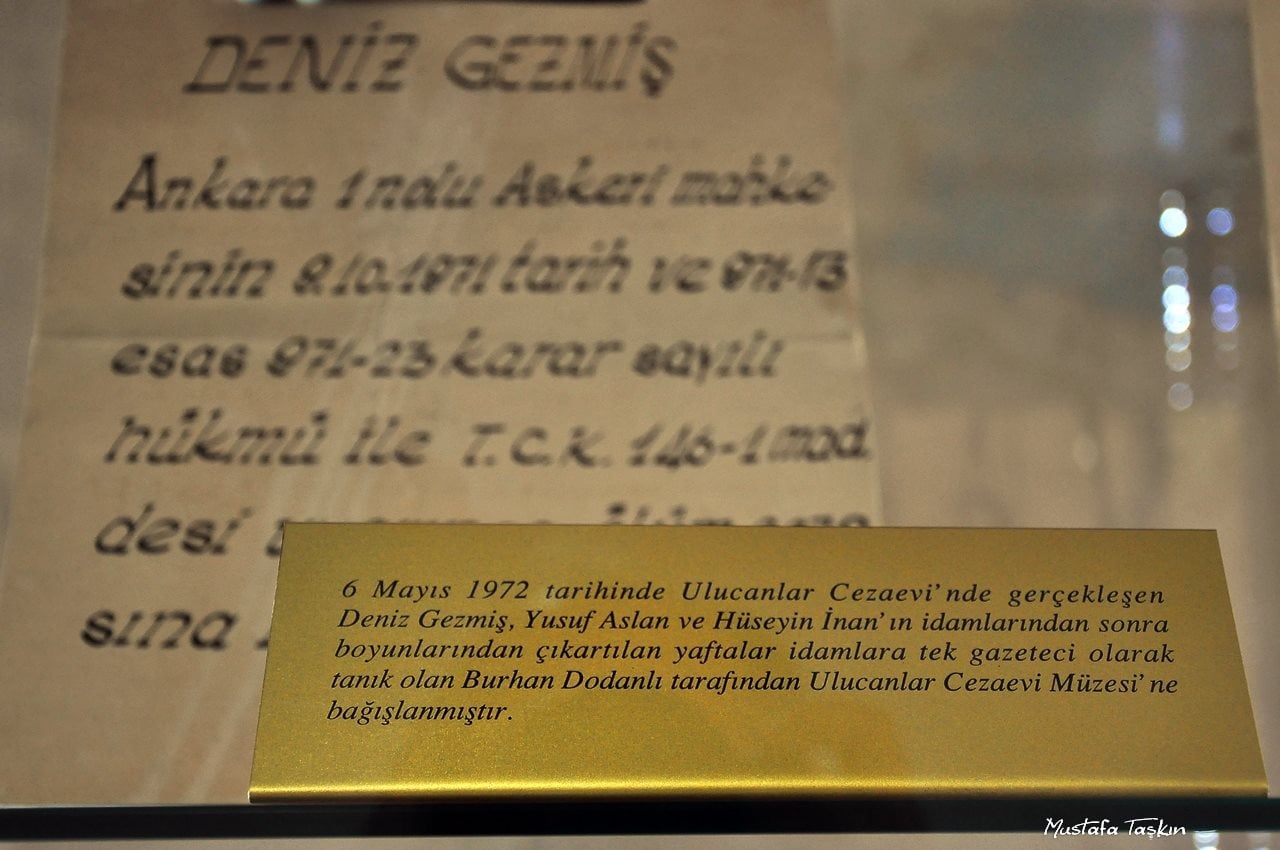 DENİZ GEZMİŞ
Ankara 1 nolu Askeri mahke
sinin 9.10.1971 tarih ve 971-13
esas 971-23 karar sayılı
hükmü ile T.C.K. 146-1 mad.
desi
sına
6 Mayıs 1972 tarihinde Ulucanlar Cezaevi'nde gerçekleşen
Deniz Gezmiş, Yusuf Aslan ve Hüseyin İnan'ın idamlarından sonra
boyunlarından çıkartılan yaftalar idamlara tek gazeteci olarak
tanık olan Burhan Dodanlı tarafından Ulucanlar Cezaevi Müzesi'ne
bağışlanmıştır.
Mustafa Taşkın